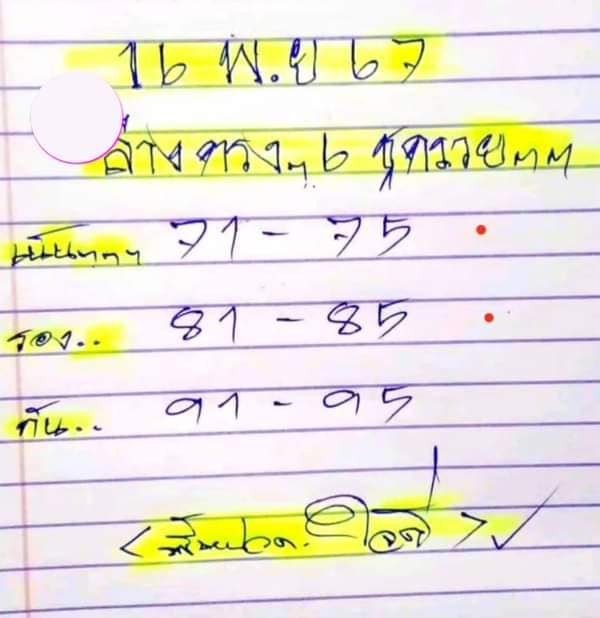 16 พ.ย 67
ล่างตรงๆ 6 ชุดรวยๆๆ
เน้นๆๆๆ 71 - 75
รอง.. 81 - 85
กัน.. 91 - 95